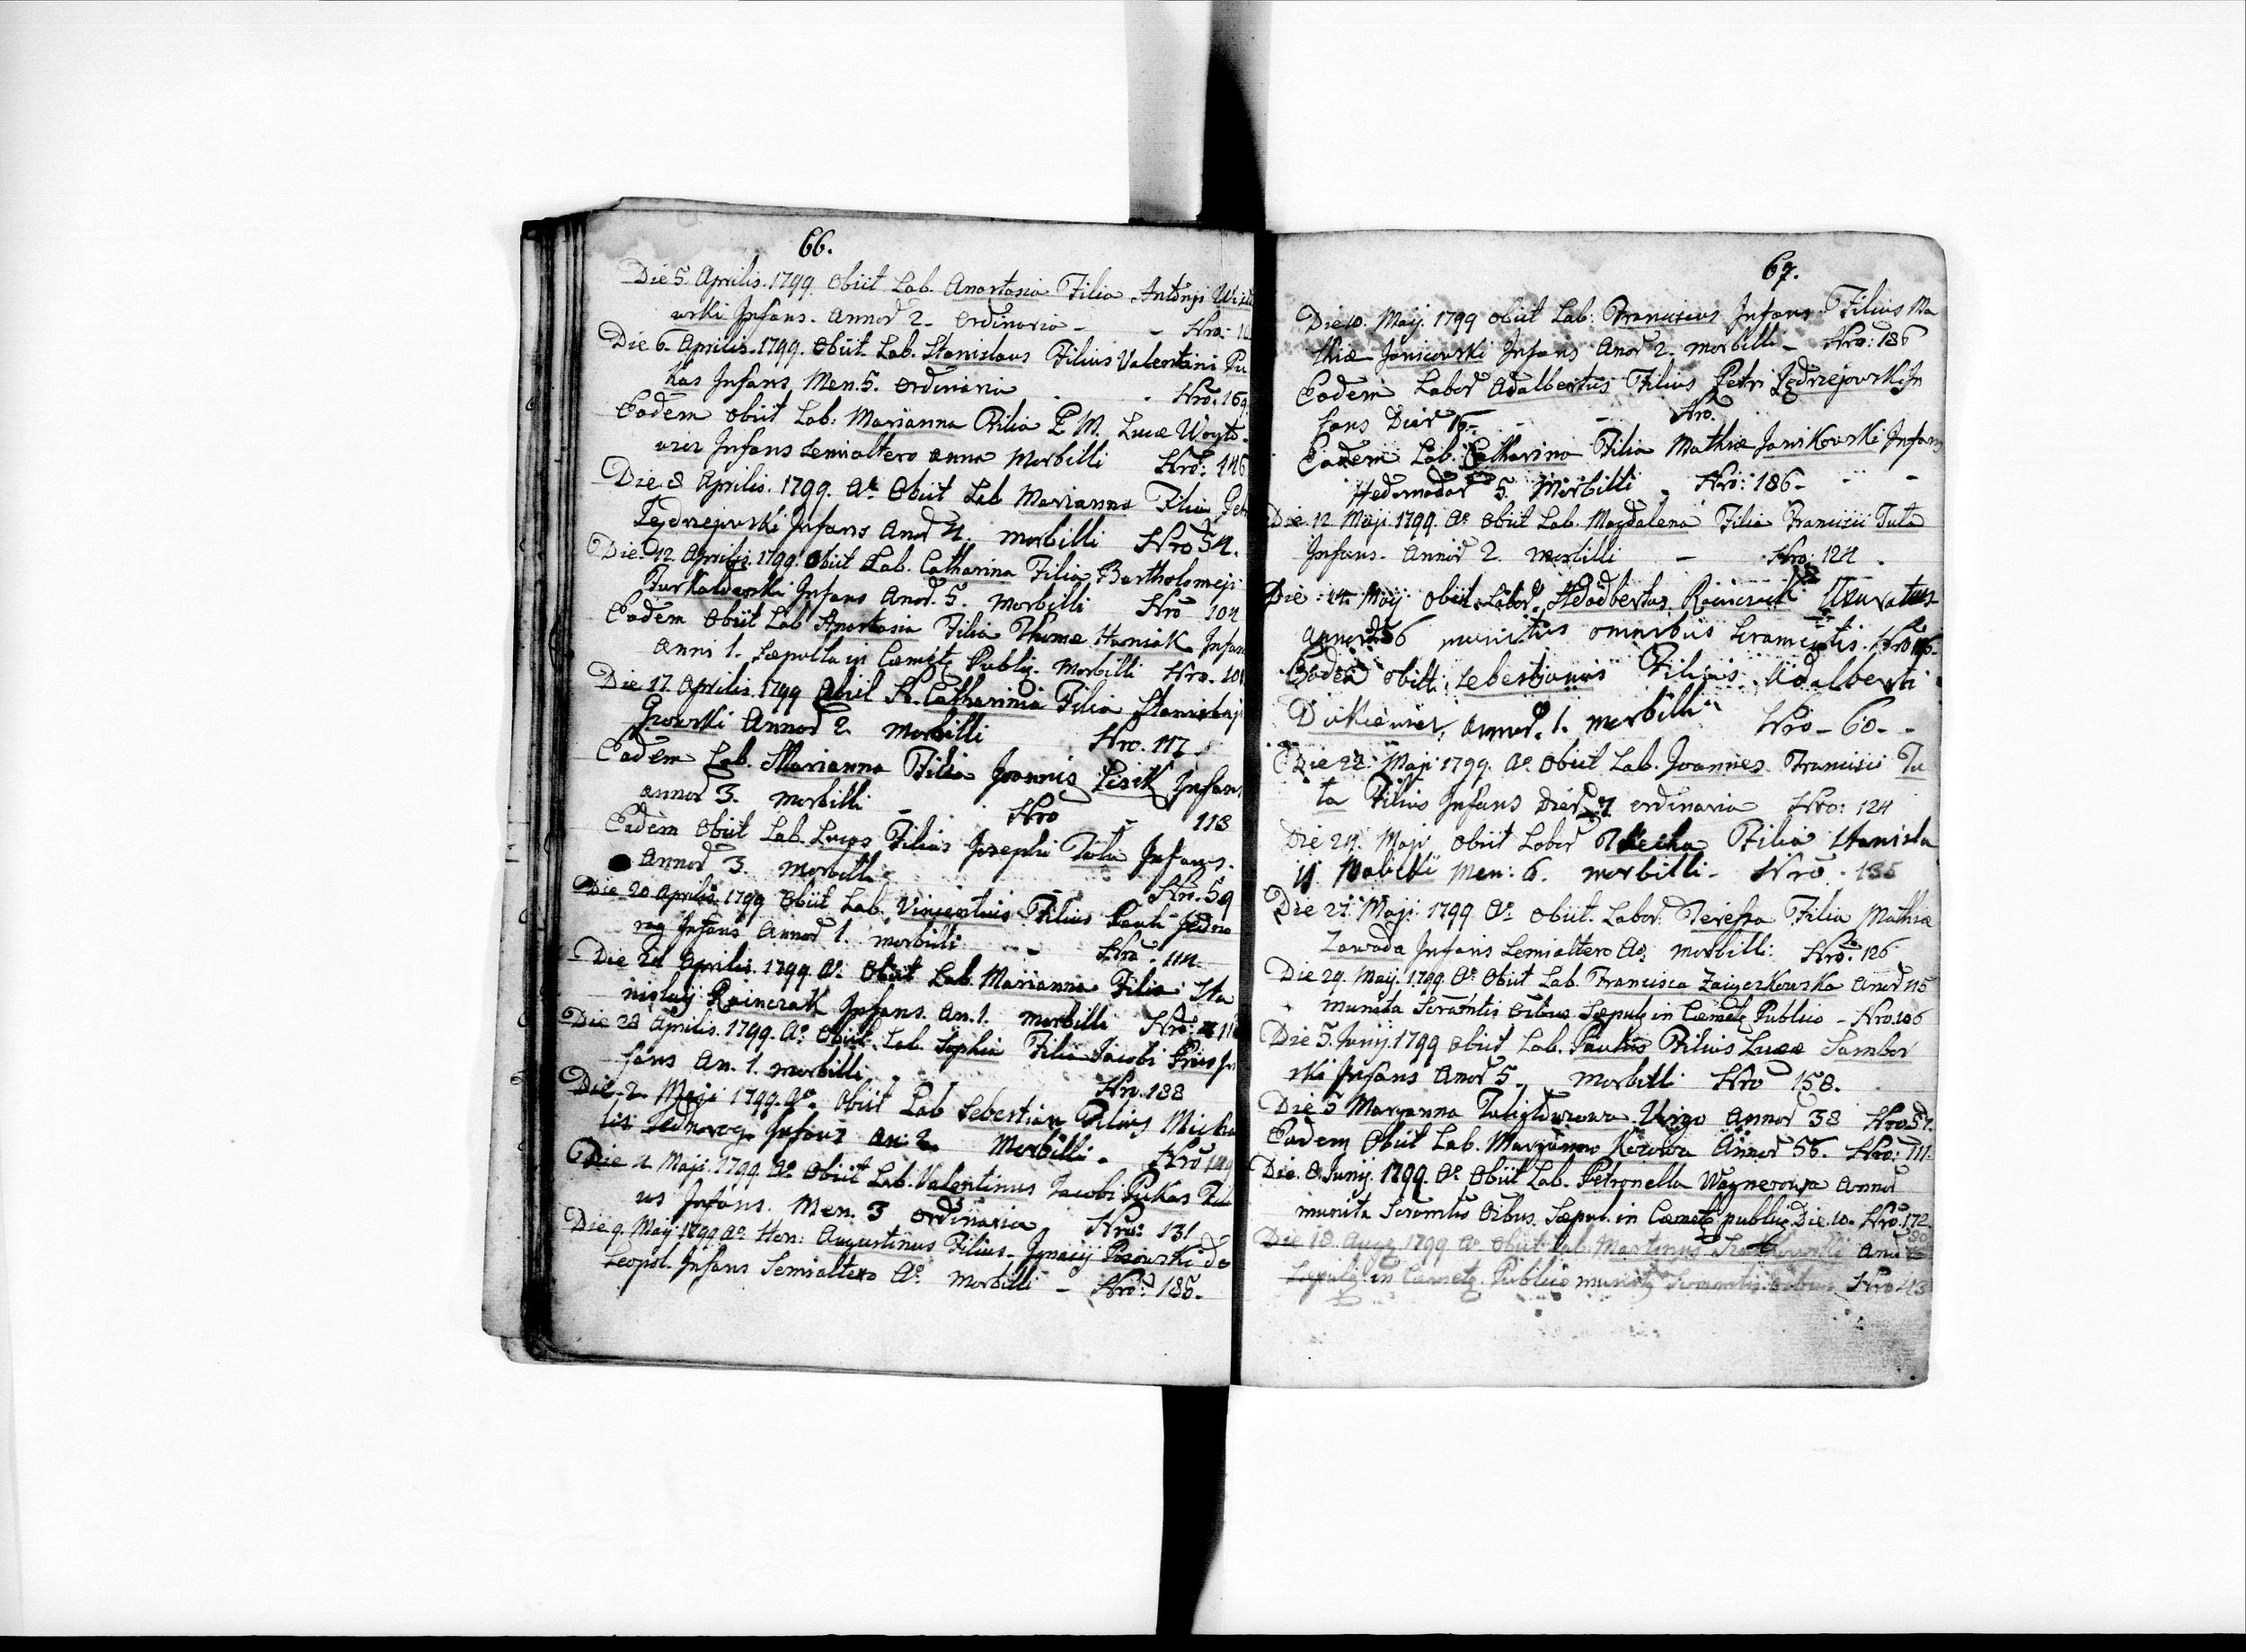 66.
Die 5. Aprilis. 1799. Obiit Lab. Anastasia Filia Antonji
wski Infans. Annor 2. Ordinaria - - Nro:
Die 6. Aprilis. 1799. Obiit Lab. Stanislaus Filius Valentini Pu
kas Infans Men. 5. Ordinaria - - Nro. 169
Eadem obiit Lab: Marianna Filia P. M. Lucæ Woyto-
wicz Infans semialtero anno Morbilli Nro: 146
Die 8 Aprilis. 1799. Ao Obiit Lab Marianna Filia Petri
Jędrzejowski Infans Anor 4. morbilli Nro 54.
Die 12 Aprilis. 1799. Obiit Lab. Catharina Filia Bartholomeji
Infans Anor. 5. Morbilli Nro 104
Eadem Obiit Lab Anastasia Filia Thomæ Haniak Infans
Anni 1. Sæpulta in Cæmetę Publię. Morbilli Nro. 101
Die 17. Aprilis. 1799 Obiit Catharina Filia Stanislaji
Annor 2. morbilli Nro. 117
Eadem Lab. Marianna Filia Joannis Lisik Infans
annor 3. morbilli - Nro - 118
Eadem Obiit Lab. Lucas Filius Josephi Tuta Infans.
Annor 3. Morbilli Nro. 59
Die 20 Aprilis. 1799 Obiit Lab. Vincentius Filius Pauli Jedno
rog Infans Annor 1. morbilli - Nro. 114
Die 24 Aprilis. 1799. Ao Obiit Lab. Marianna Filia Sta
nislaij Rainczak Infans. An. 1. morbilli Nro: 118
Die 28 Aprilis. 1799. Ao Obiit Lab. Sophia Filia Jacobi In
fans An. 1. morbilli - Nro. 188
Die 2. Maji 1799. Ao. Obiit Lab Sebestian Filius Micha
lis Jednorog Infans An: 2. Morbilli. Nro 149
Die 4 Maji. 1799. Ao Obiit Lab. Valentinus Jacobi Pukas Fili
us Infans. Men. 3 ordinaria Nro: 131
Die 9. Maij 1799 Ao Hon: Augustinus Filius Ignacij Posowski de
Leopol. Infans Semialtero Ao. Morbilli - Nro: 185.
67.
Die 10. Maij. 1799 obiit Lab: Franciscus Infans Filius Ma
thiæ Janicowski Infans Anor 2. morbilli - Nro: 186
Eadem Labor Adalbertus Filius Petri Jędrzejowski In
fans Dier 16 - - Nro.
Eadem Lab. Catharina Filia Mathiæ Janikowski Infans
Hedomadar 5. Morbilli - Nro: 186 - -
Die 12 Maji. 1799. Ao Obiit Lab. Magdalena Filia Francisci Tuta
Infans. Annor 2. morbilli - Nro: 124.
Die 14 Maij obiit Labor. Adadbertus Rainczak Uxuratus
annor 56 munitus omnibus Scramentis. Nro
Eadem obiit Sebestianus Filius Adalberti
Annor. 1. morbilli Nro - 60 -
Die 22. Maji 1799. Ao Obiit Lab. Joannes Francisci Tu
ta Filius Infans Dier 7 ordinaria Nro: 124
Die 24. Maji obiit Labor Filia Stanisla
ij Men: 6. morbilli - Nro. 135
Die 27. Maji. 1799 Ao Obiit. Labor. Teressa Filia Mathiæ
Zawada Infans Semialtero Ao. morbilli: Nro. 126
Die 29. Maij. 1799. Ao Obiit Lab. Francisca Anor 45
munita Scramtis oibus Sæpulę in Cæmetę Publico - Nro. 106
Die 5. Junij. 1799 Obiit Lab. Paulus Filius Lucæ Sambor
ski Infans Anor 5. Morbilli Nro 158.
Die 5 Maryanna Virgo Annor 38 Nro 51.
Eadem Obiit Lab. Maryanna Annor 56. Nro: 111.
Die. 8. Junij. 1799. Ao Obiit Lab. Petronella Wagnerowa Annor
munita Scramtis Oibus. Sæpul. in Cæmetę publię Die 10. Nro. 172.
Die 18 Augę 1799 Ao Obiit Lab. Martinus Anor 30
Sæpultę in Cæmetę Publico munitę Scramtis oibus Nro 43